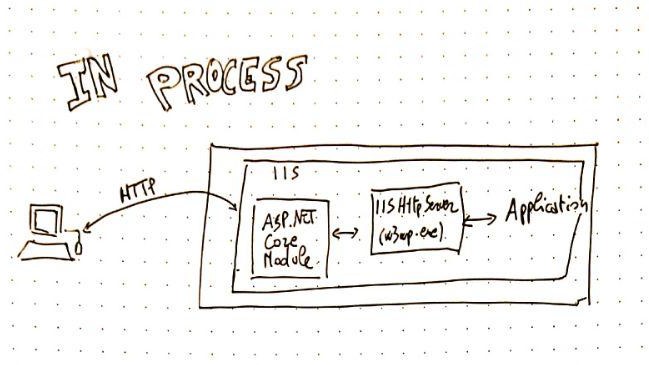 IN PROCESS
HTTP
IIS
ASP.NET
Core
Module
IIS Http Server
(w3wp.exe)
Application